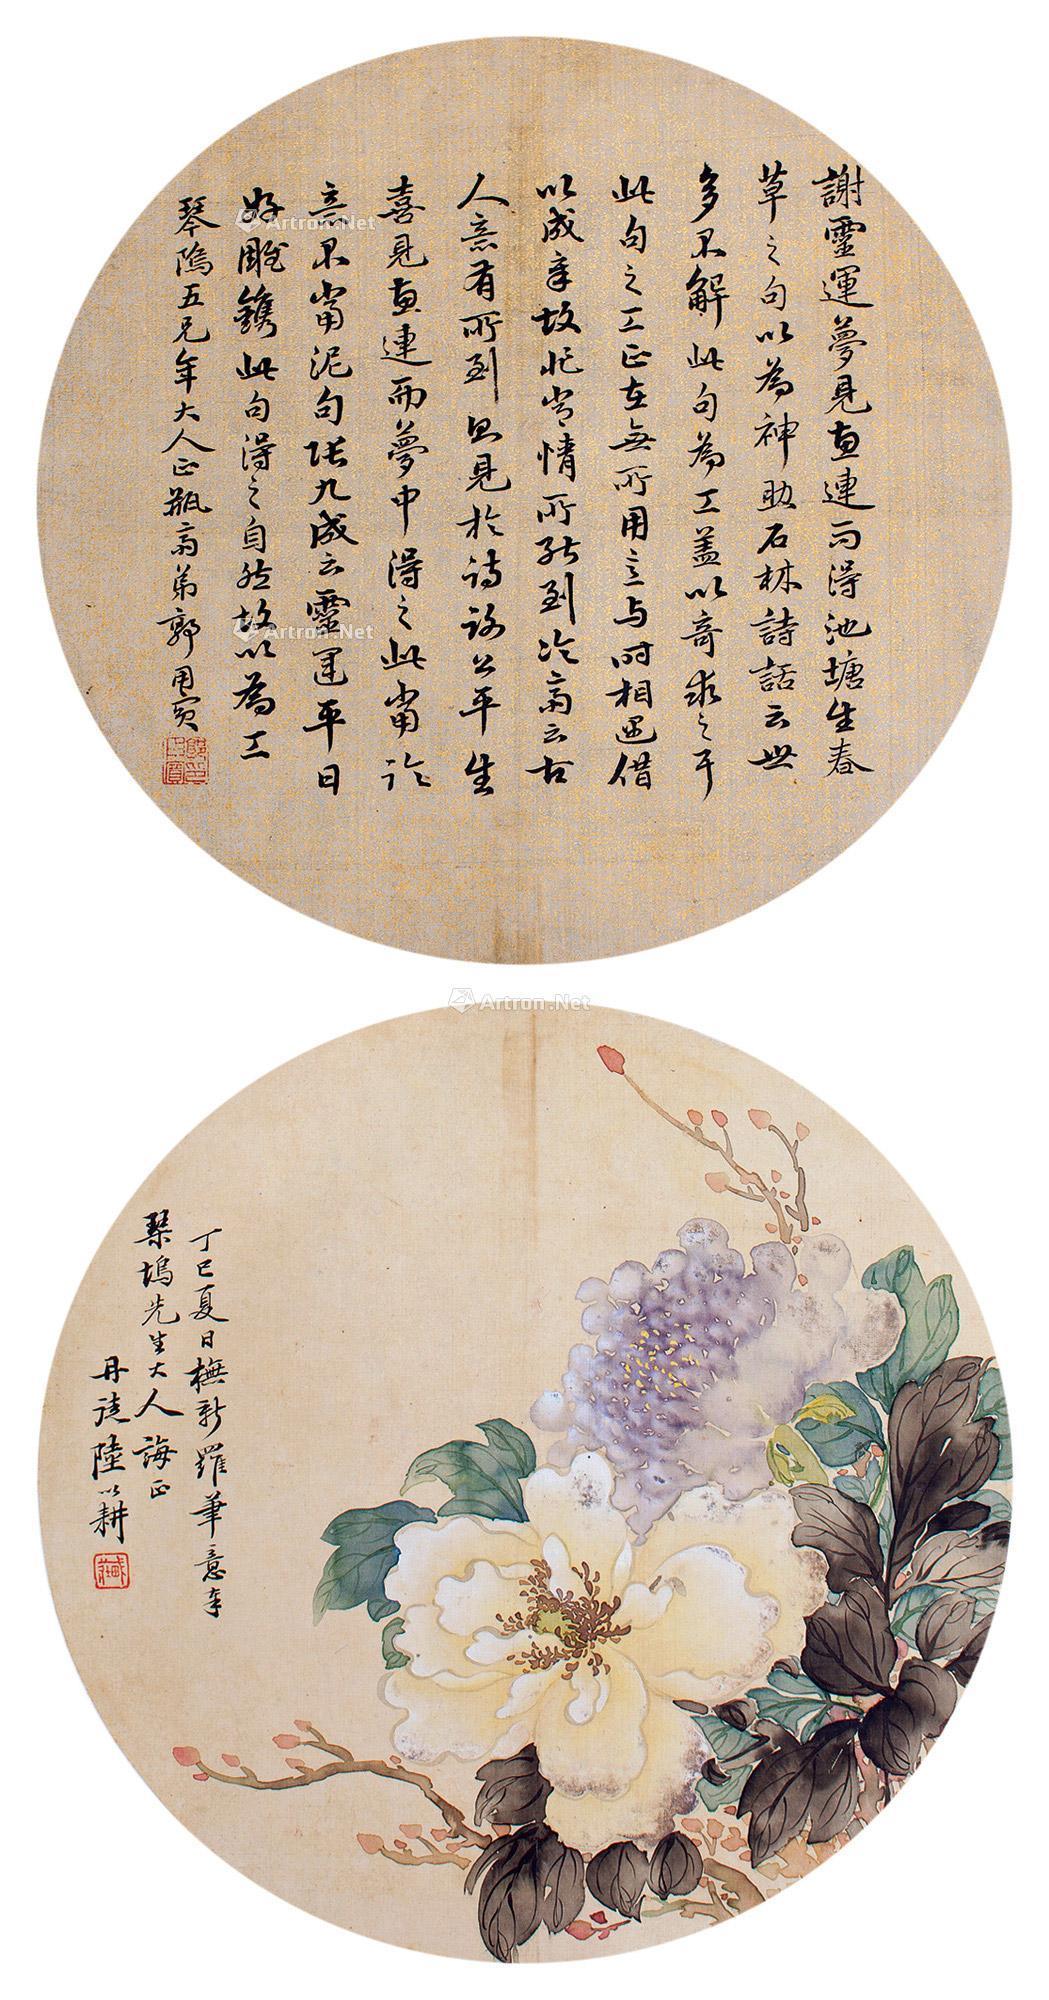 謝靈運夢見惠連而得池塘生春
草之句以為神助石林詩話云世
多不解此句為工蓋以奇求之耳
此句之工正在無所用意与時相遇借
以成章故非常情所能到冷齋云古
人意有所到即見於詩謝公平生
喜見惠連而夢中得之此當論
意不當泥句張九成云靈運平日
好雕鐫此句得之自然故以為工
琴隖五兄年大人正 瓶齋弟郭用賓
丁巳夏日橅新羅筆意奉
琹塢先生大人誨正
丹徒陸以耕
Artron.Net
Artron.Net
Artron.Net